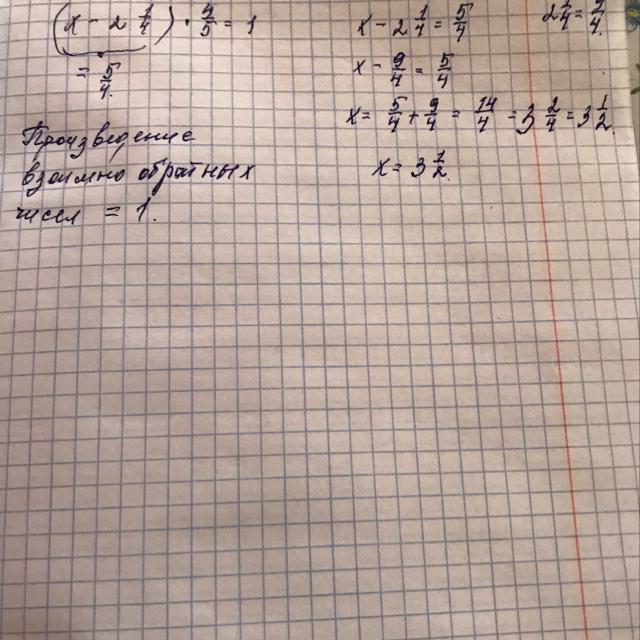 (x - 2 1/4) · 4/5 = 1
= 5/4.
Произведение
взаимно обратных
чисел = 1.
x - 2 1/4 = 5/4
x - 9/4 = 5/4
x = 5/4 + 9/4 = 14/4 = 3 2/4 = 3 1/2.
x = 3 1/2.
2 1/4 = 9/4.